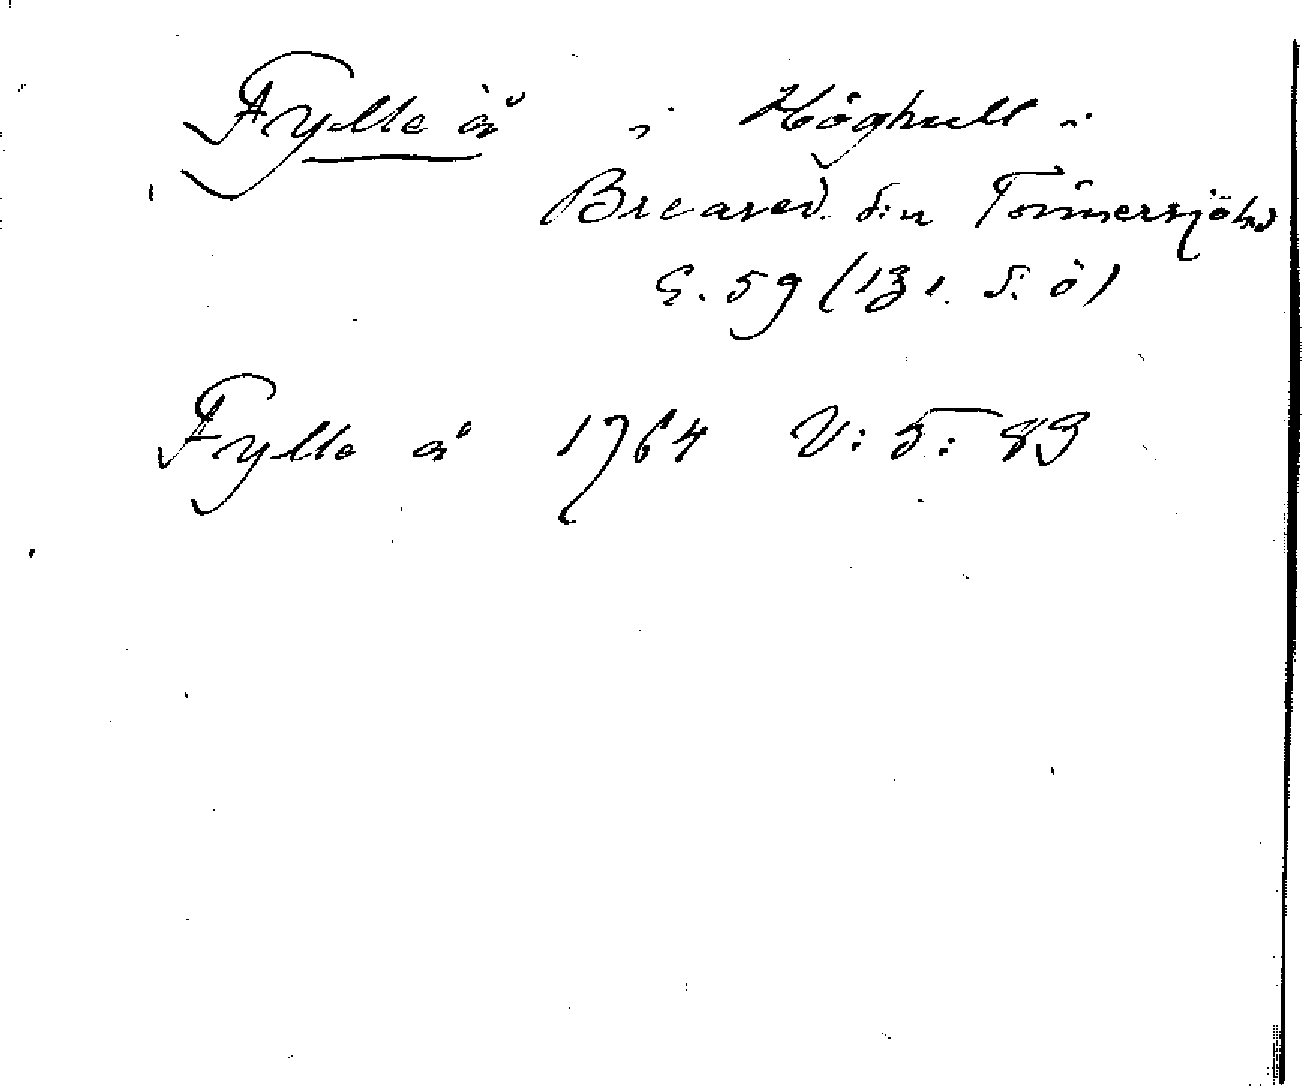 Fylle å i Höghult i
Breared s:n Tönnersjö hd
G. 59 (1731 s. ö)
Fylle å 1764 V: 5: 83